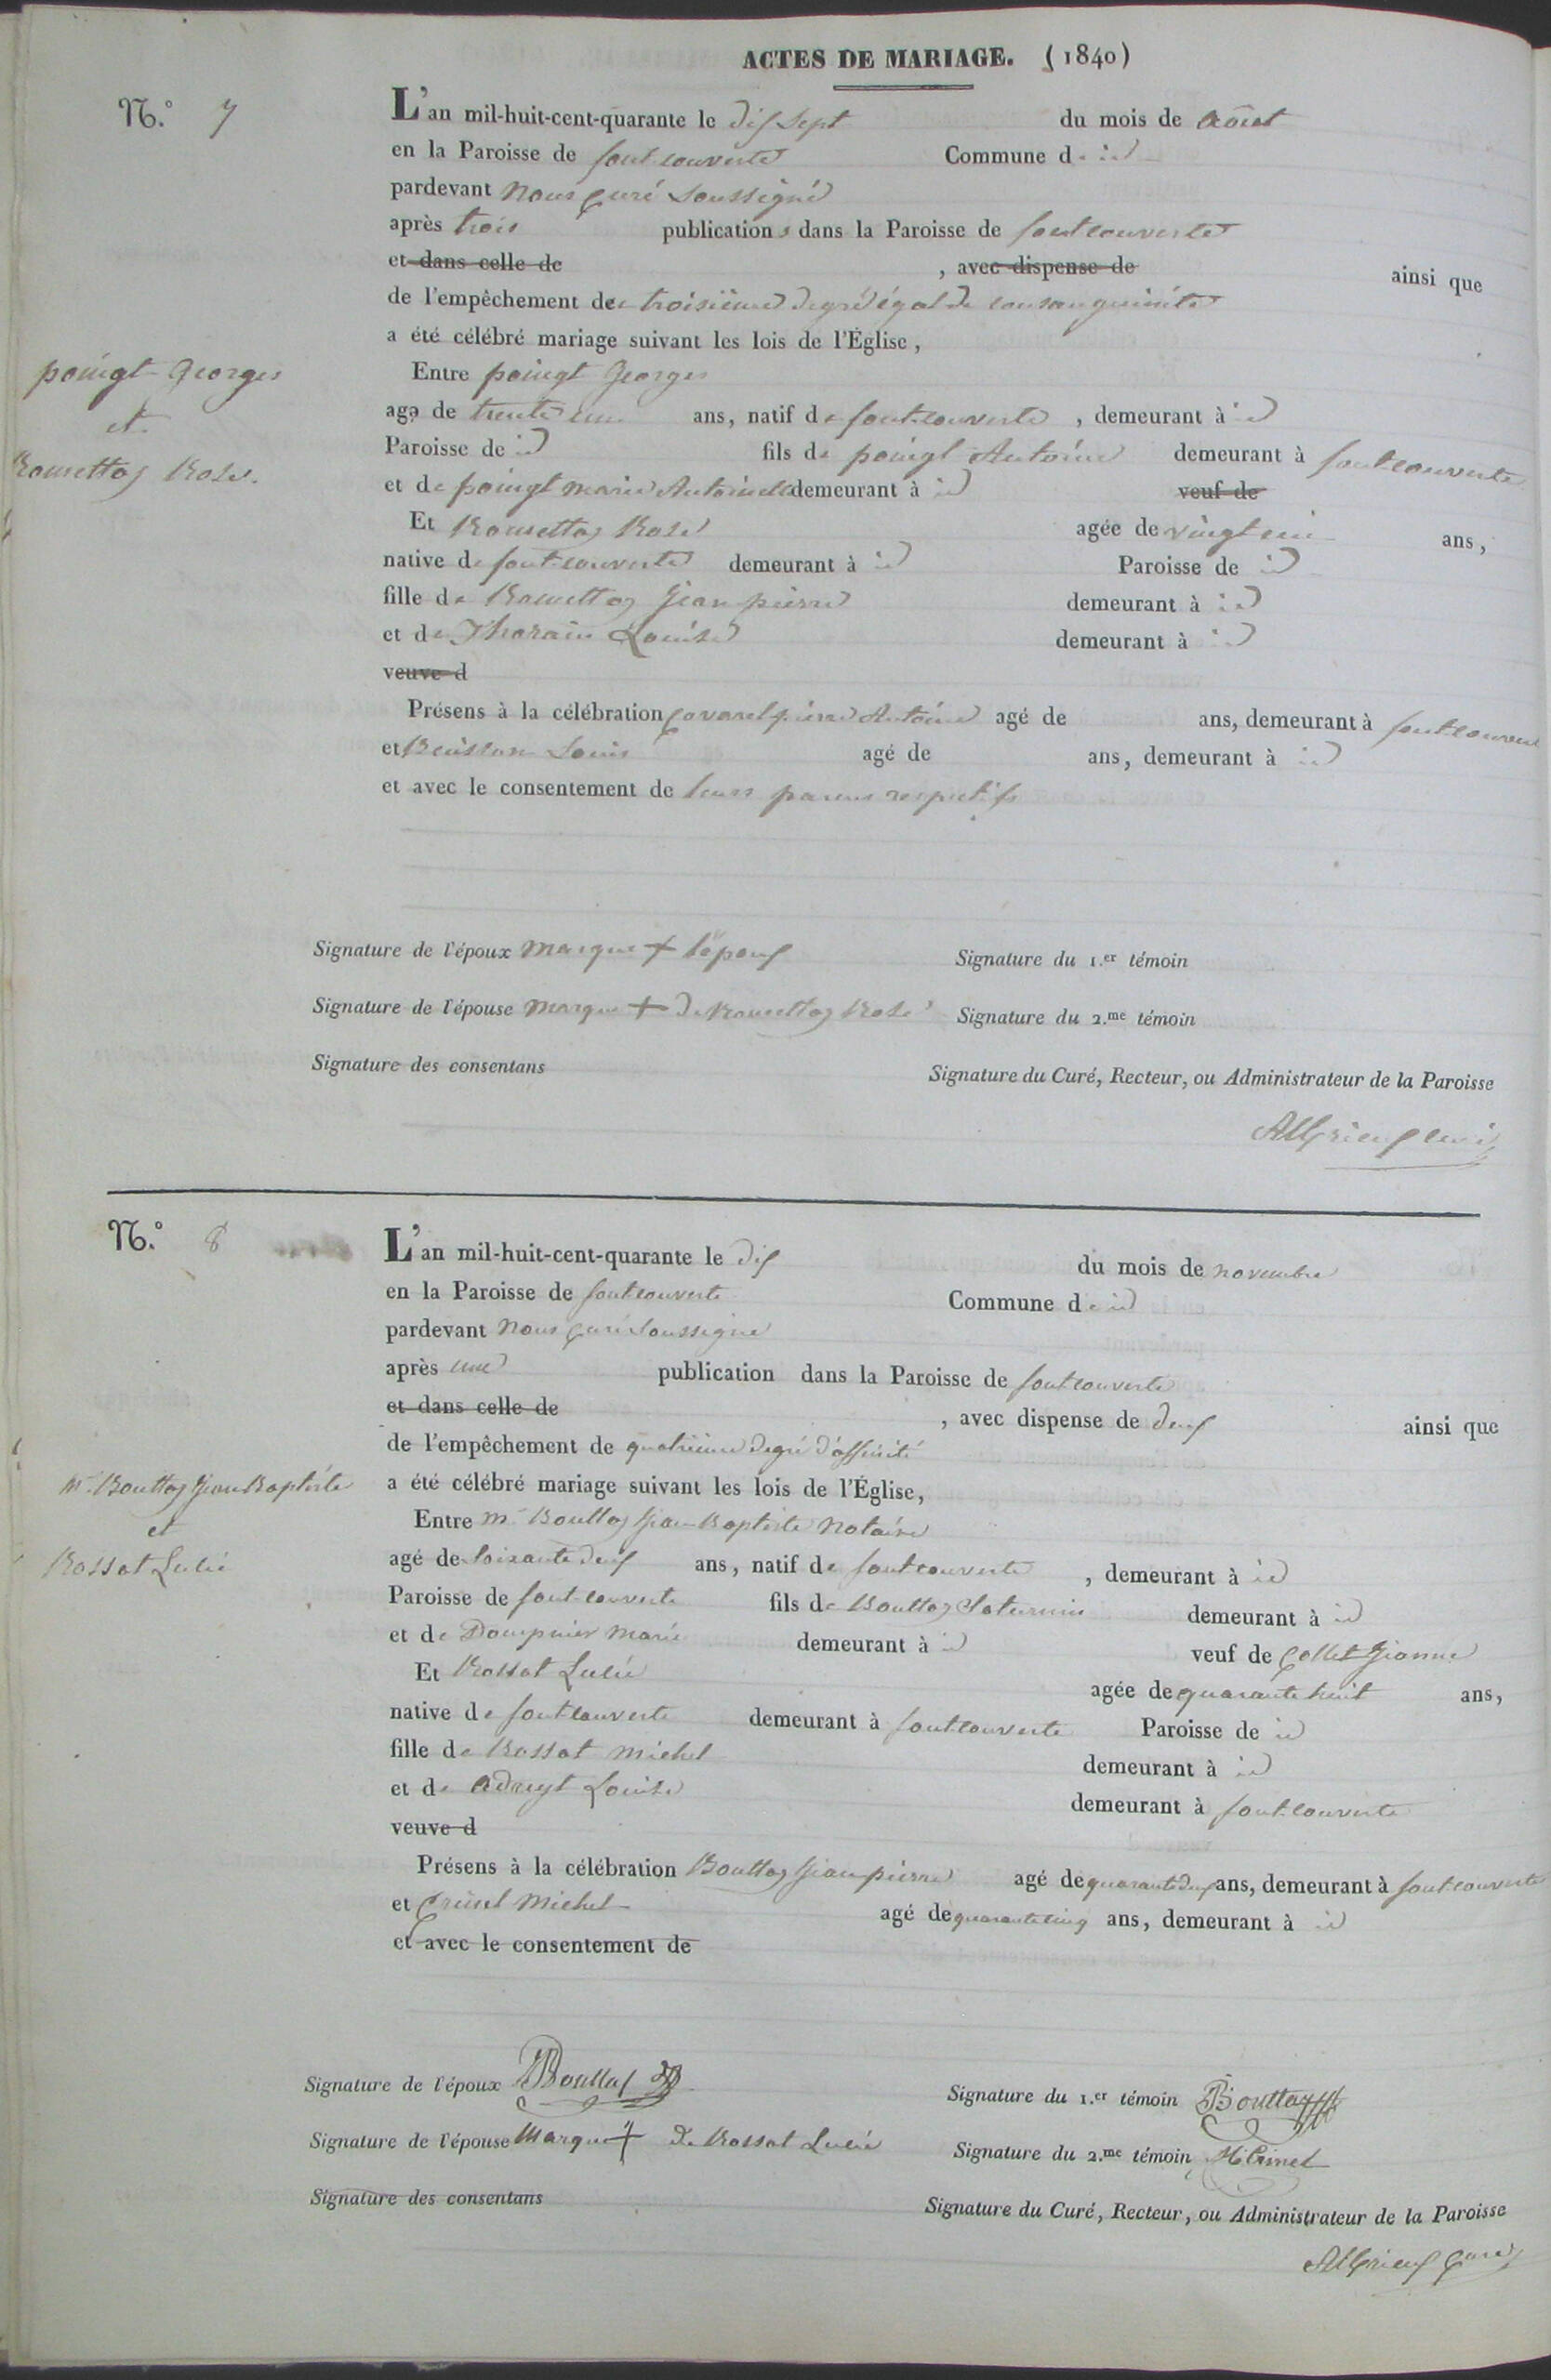 ACTES DE MARIAGE. (1840)
N.° 7
L'an mil-huit-cent-quarante le dix sept du mois de Août
en la Paroisse de fontcouverte Commune d e id
pardevant nous Curé Soussigné
après trois publications dans la Paroisse de fontcouverte
et dans celle de , avec dispense de ainsi que
de l'empêchement de troisième degré égal de consanguinité
a été célébré mariage suivant les lois de l'Église,
poingt Georges
et
Rose.
Entre poingt Georges
agé de trente un ans, natif de fontcouverte , demeurant à id
Paroisse de id fils de poingt Antoine demeurant à fontcouverte
et de poingt marie Antoinette demeurant à id veuf de
Et Rose agée de vingt un ans,
native de fontcouverte demeurant à id Paroisse de id
fille de Jean pierre demeurant à id
et de Thorain Louise demeurant à id
veuve d
Présens à la célébration Covarel pierre Antoine agé de ans, demeurant à fontcouverte
et Buisson Louis agé de ans, demeurant à id
et avec le consentement de leurs parens respectifs
Signature de l'époux marque + l'époux Signature du 1.er témoin
Signature de l'épouse marque + de Rose Signature du 2.me témoin
Signature des consentans Signature du Curé, Recteur, ou Administrateur de la Paroisse
curé
N.° 8
L'an mil-huit-cent-quarante le dix du mois de novembre
en la Paroisse de fontcouverte Commune d e id
pardevant nous Curé soussigné
après une publication dans la Paroisse de fontcouverte
et dans celle de , avec dispense de deux ainsi que
de l'empêchement de quatrième degré d'affinité
a été célébré mariage suivant les lois de l'Église,
m.e Bouttaz Jean Baptiste
et
Rossat Lucie
Entre m.e Bouttaz Jean Baptiste Notaire
agé de soixante deux ans, natif de fontcouverte , demeurant à id
Paroisse de fontcouverte fils de Bouttaz Saturnin demeurant à id
et de Dompnier Marie demeurant à id veuf de Collet Jeanne
Et Rossat Lucie agée de quarante huit ans,
native de fontcouverte demeurant à fontcouverte Paroisse de id
fille de Rossat michel demeurant à id
et de Adruyt Louise demeurant à fontcouverte
veuve d
Présens à la célébration Bouttaz Jean pierre agé de quarante deux ans, demeurant à fontcouverte
et Crinel Michel agé de quarante cinq ans, demeurant à id
et avec le consentement de
Signature de l'époux Bouttaz Signature du 1.er témoin Bouttaz
Signature de l'épouse Marque + de Rossat Lucie Signature du 2.me témoin M Crinel
Signature des consentans Signature du Curé, Recteur, ou Administrateur de la Paroisse
Curé